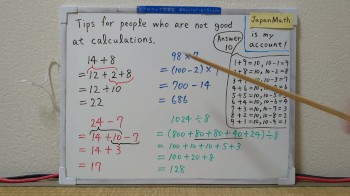 Tips for people who are not good
at calculations.
14+8
=12+2+8
=12+10
=22
24-7
=14+10-7
=14+3
=17
98×7
=(100-2)×7
=700-14
=686
1024÷8
=(800+80+80+40+24)÷8
=100+10+10+5+3
=100+20+8
=128
JapanMath
is my
account!
Answer
10
1+9=10, 10-1=9
2+8=10, 10-2=8
3+7=10, 10-3=7
4+6=10, 10-4=6
5+5=10, 10-5=5
6+4=10, 10-6=4
7+3=10, 10-7=3
8+2=10, 10-8=2
9+1=10, 10-9=1